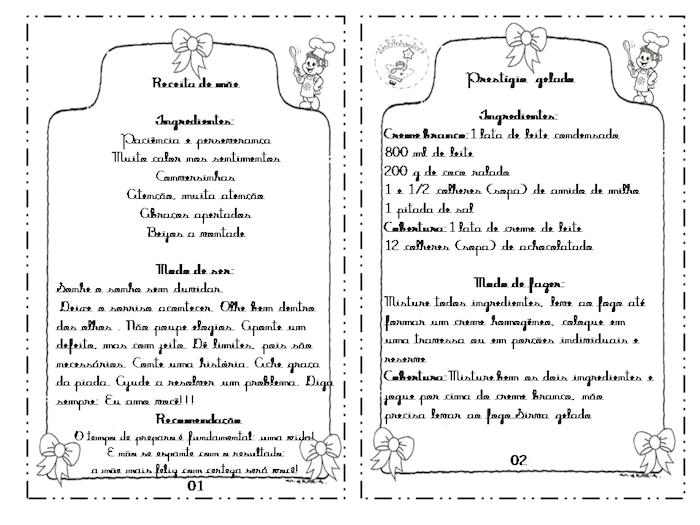 Receita de mãe
Ingredientes:
Paciência e perseverança
Muito calor nos sentimentos
Conversinhas
Atenção, muita atenção
Abraços apertados
Beijos a vontade
Modo de ser:
Sonhe o sonho sem duvidar.
Deixe o sorriso acontecer. Olhe bem dentro
dos olhos . Não poupe elogios. Aponte um
defeito, mas com jeito. Dê limites, pois são
necessários. Conte uma história. Ache graça
da piada. Ajude a resolver um problema. Diga
sempre: Eu amo você!!!
Recomendação
O tempo de preparo é fundamental: uma vida!
E não se espante com o resultado:
a mãe mais feliz com certeza será você!
01
Prestígio gelado
Ingredientes:
Creme branco: 1 lata de leite condensado
800 ml de leite
200 g de coco ralado
1 e 1/2 colheres (sopa) de amido de milho
1 pitada de sal
Cobertura: 1 lata de creme de leite
12 colheres (sopa) de achocolatado
Modo de fazer:
Misture todos ingredientes, leve ao fogo até
formar um creme homogêneo, coloque em
uma travessa ou em porções individuais e
reserve.
Cobertura: Misture bem os dois ingredientes e
jogue por cima do creme branco, não
precisa levar ao fogo. Sirva gelado.
02